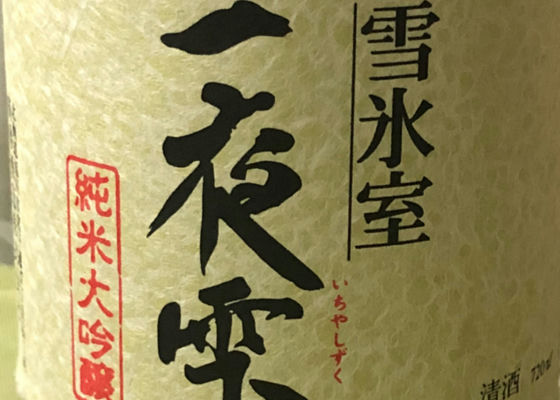 雪氷室
一夜雫
いちやしずく
純米大吟醸
清酒 720ml